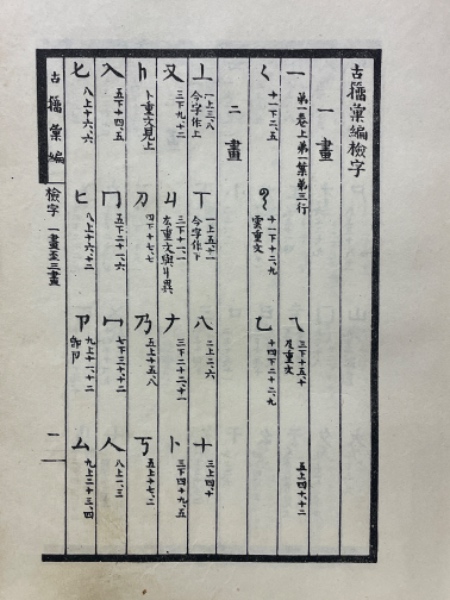 古籀彙編檢字
一畫
一 第一卷上第一葉第三行
乁 三下十五、十 及重文
五上四十、十二
く 十一下二、五
十一下十二、九 雲重文
乙 十四下二十二、九
二畫
丄 一上三、八 今字作上
丅 一上五、十一 今字作下
八 二上二、六
十 三上四、十
又 三下九、十二
三下十一、一 厷重文與丩異
𠂇 三下二十二、十一
卜 三下四十九、五
卜重文見上
刀 四下十七、七
乃 五上十五、八
丂 五上十七、二
入 五下十四、五
冂 五下二十一、六
冖 七下三十、十二
人 八上一、三
匕 八上十六、六
匕 八上十六、十二
卩 九上十一、十二 即卪
厶 九上二十三、四
古籀彙編 檢字 一畫至三畫 一